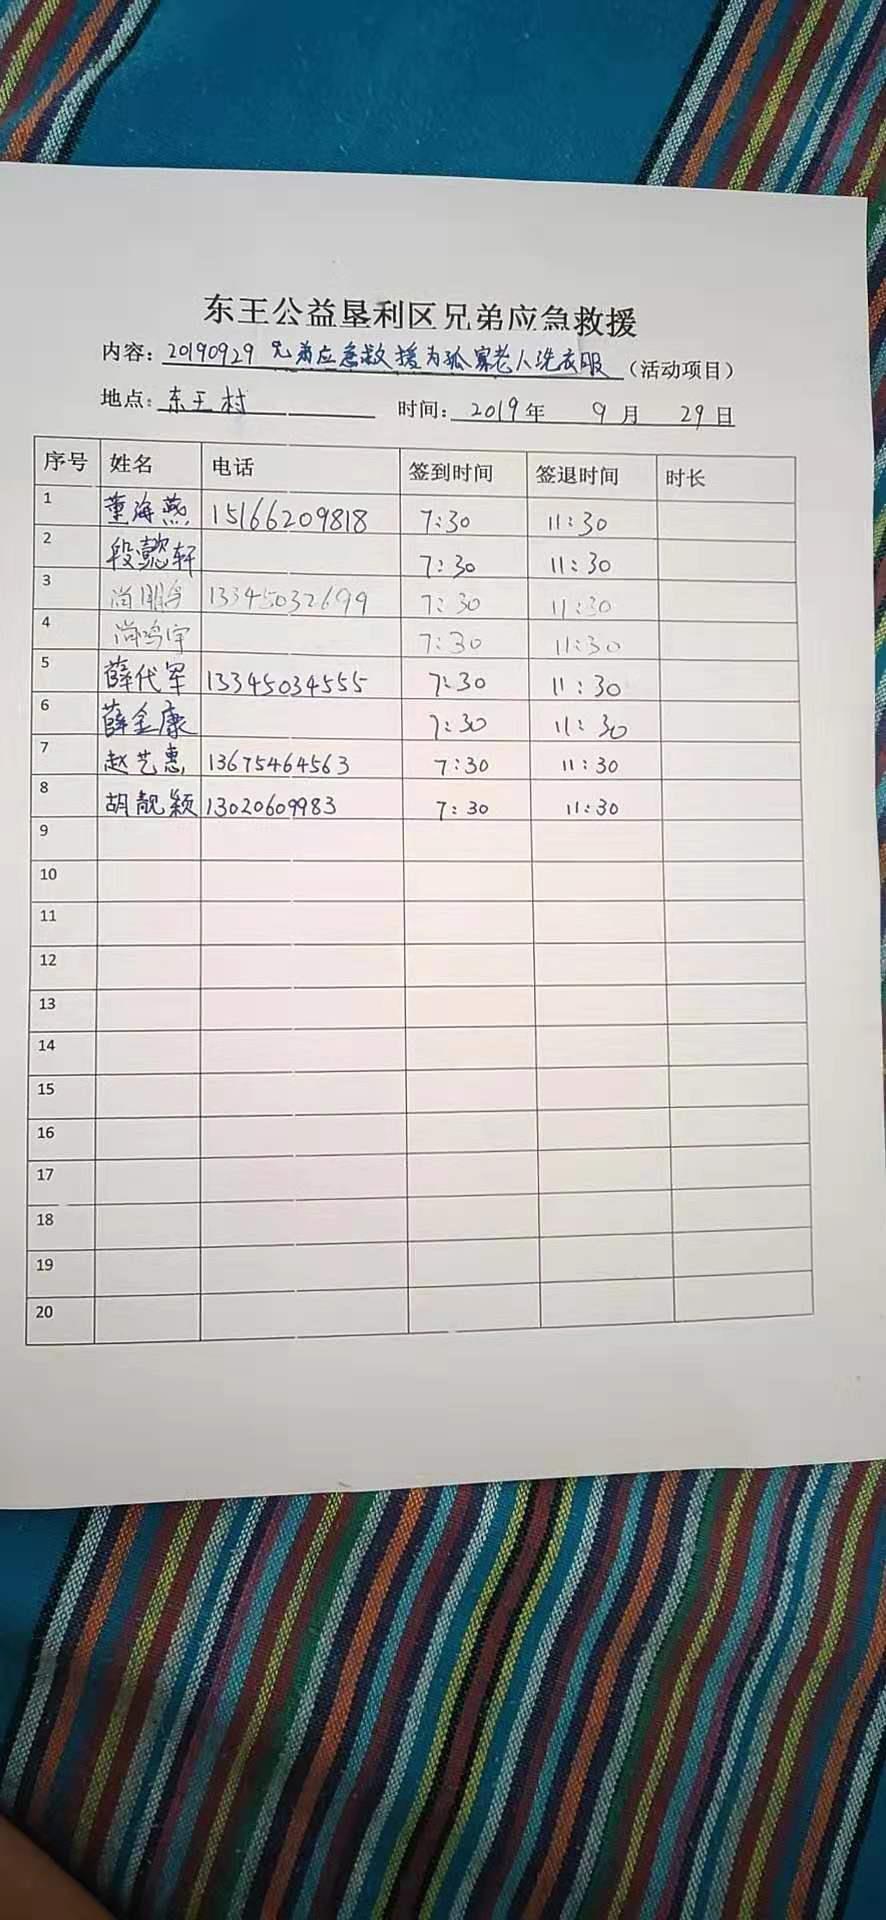 东王公益垦利区兄弟应急救援
内容：20190929 兄弟应急救援为孤寡老人洗衣服（活动项目）
地点：东王村 时间：2019年 9月 29日
序号 姓名 电话 签到时间 签退时间 时长
1 董海燕 15166209818 7:30 11:30
2 段懿轩 7:30 11:30
3 尚鹏 13345032699 7:30 11:30
4 尚鸣宇 7:30 11:30
5 薛代军 13345034555 7:30 11:30
6 薛金康 7:30 11:30
7 赵艺惠 13675464563 7:30 11:30
8 胡靓颖 13020609983 7:30 11:30
9
10
11
12
13
14
15
16
17
18
19
20